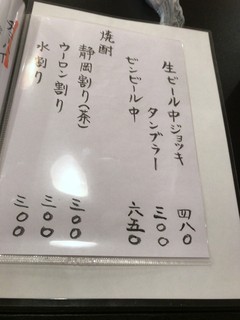 生ビール中ジョッキ 四八〇
タンブラー 三〇〇
ビンビール中 六五〇
焼酎
静岡割り(茶) 三〇〇
ウーロン割り 三〇〇
水割り 三〇〇